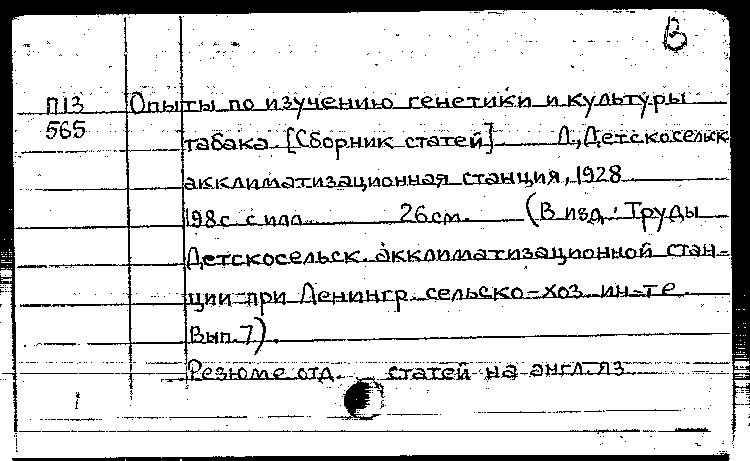 В
П13 Опыты по изучению генетики и культуры
565 табака [Сборник статей] Л., Детскосельск
акклиматизационная станция, 1928
198с. с илл. 26см. (В изд.: Труды
Детскосельск. акклиматизационной стан-
ции при Ленингр. сельско-хоз ин-те.
Вып. 7).
Резюме отд. статей на англ. яз
1